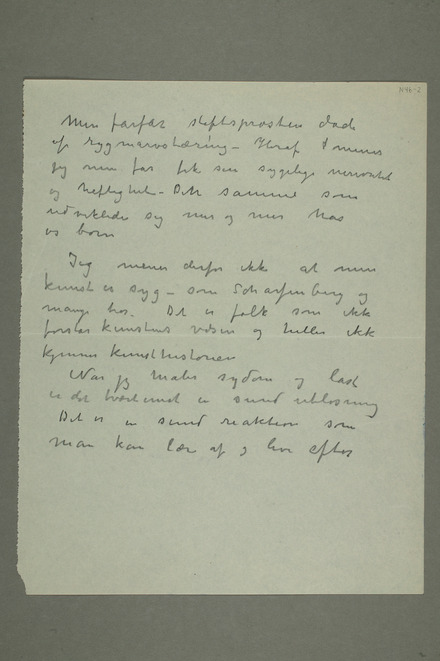 N46-2
Min farfar stiftsprosten døde
af rygmarvstæring – Heraf mener
jeg min far fik sin sygelige nervøsitet
og heftighet – Det samme som
udviklede sig mer og mer hos
os børn
Jeg mener derfor ikke at min
kunst er syg – som Scharfenberg og
mange tror. Det er folk som ikke
forstår kunstens væsen og heller ikke
kjenner kunsthistorien
Når jeg maler sygdom og last
er det tværtimot en sund utløsning
Det er en sund reaktion som
man kan lære af og leve efter